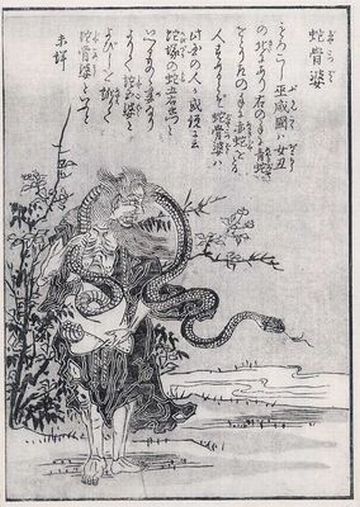 蛇骨婆
もろこし巫咸國は女丑
の北にあり右の手に青蛇
をとり左の手に赤蛇をとる
人すめるとぞ蛇骨婆は
此国の人か或説に云
蛇塚の蛇五右衛門と
いへるものゝ妻なり
よりて蛇五婆と
よびしを訛りて
蛇骨婆といふと
未詳